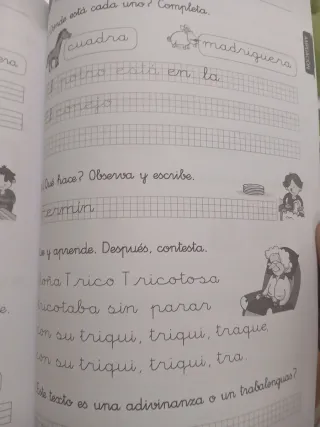 onde está cada uno? Completa.
cuadra
madriguera
El potro está en la
El conejo
¿Qué hace? Observa y escribe.
Fermín
Lee y aprende. Después, contesta.
Doña Trico Tricotosa
tricotaba sin parar
con su triqui, triqui, traque,
con su triqui, triqui, tra.
¿Este texto es una adivinanza o un trabalenguas?